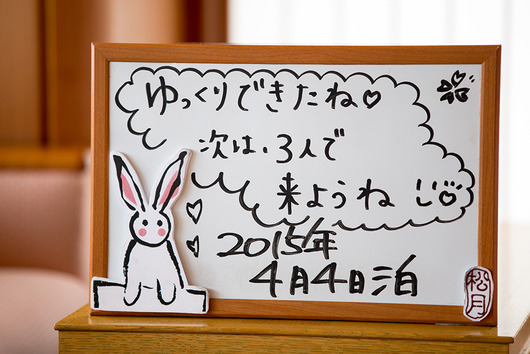 ゆっくりできたね♡
次は、3人で
来ようね
2015年
4月4日泊
松月